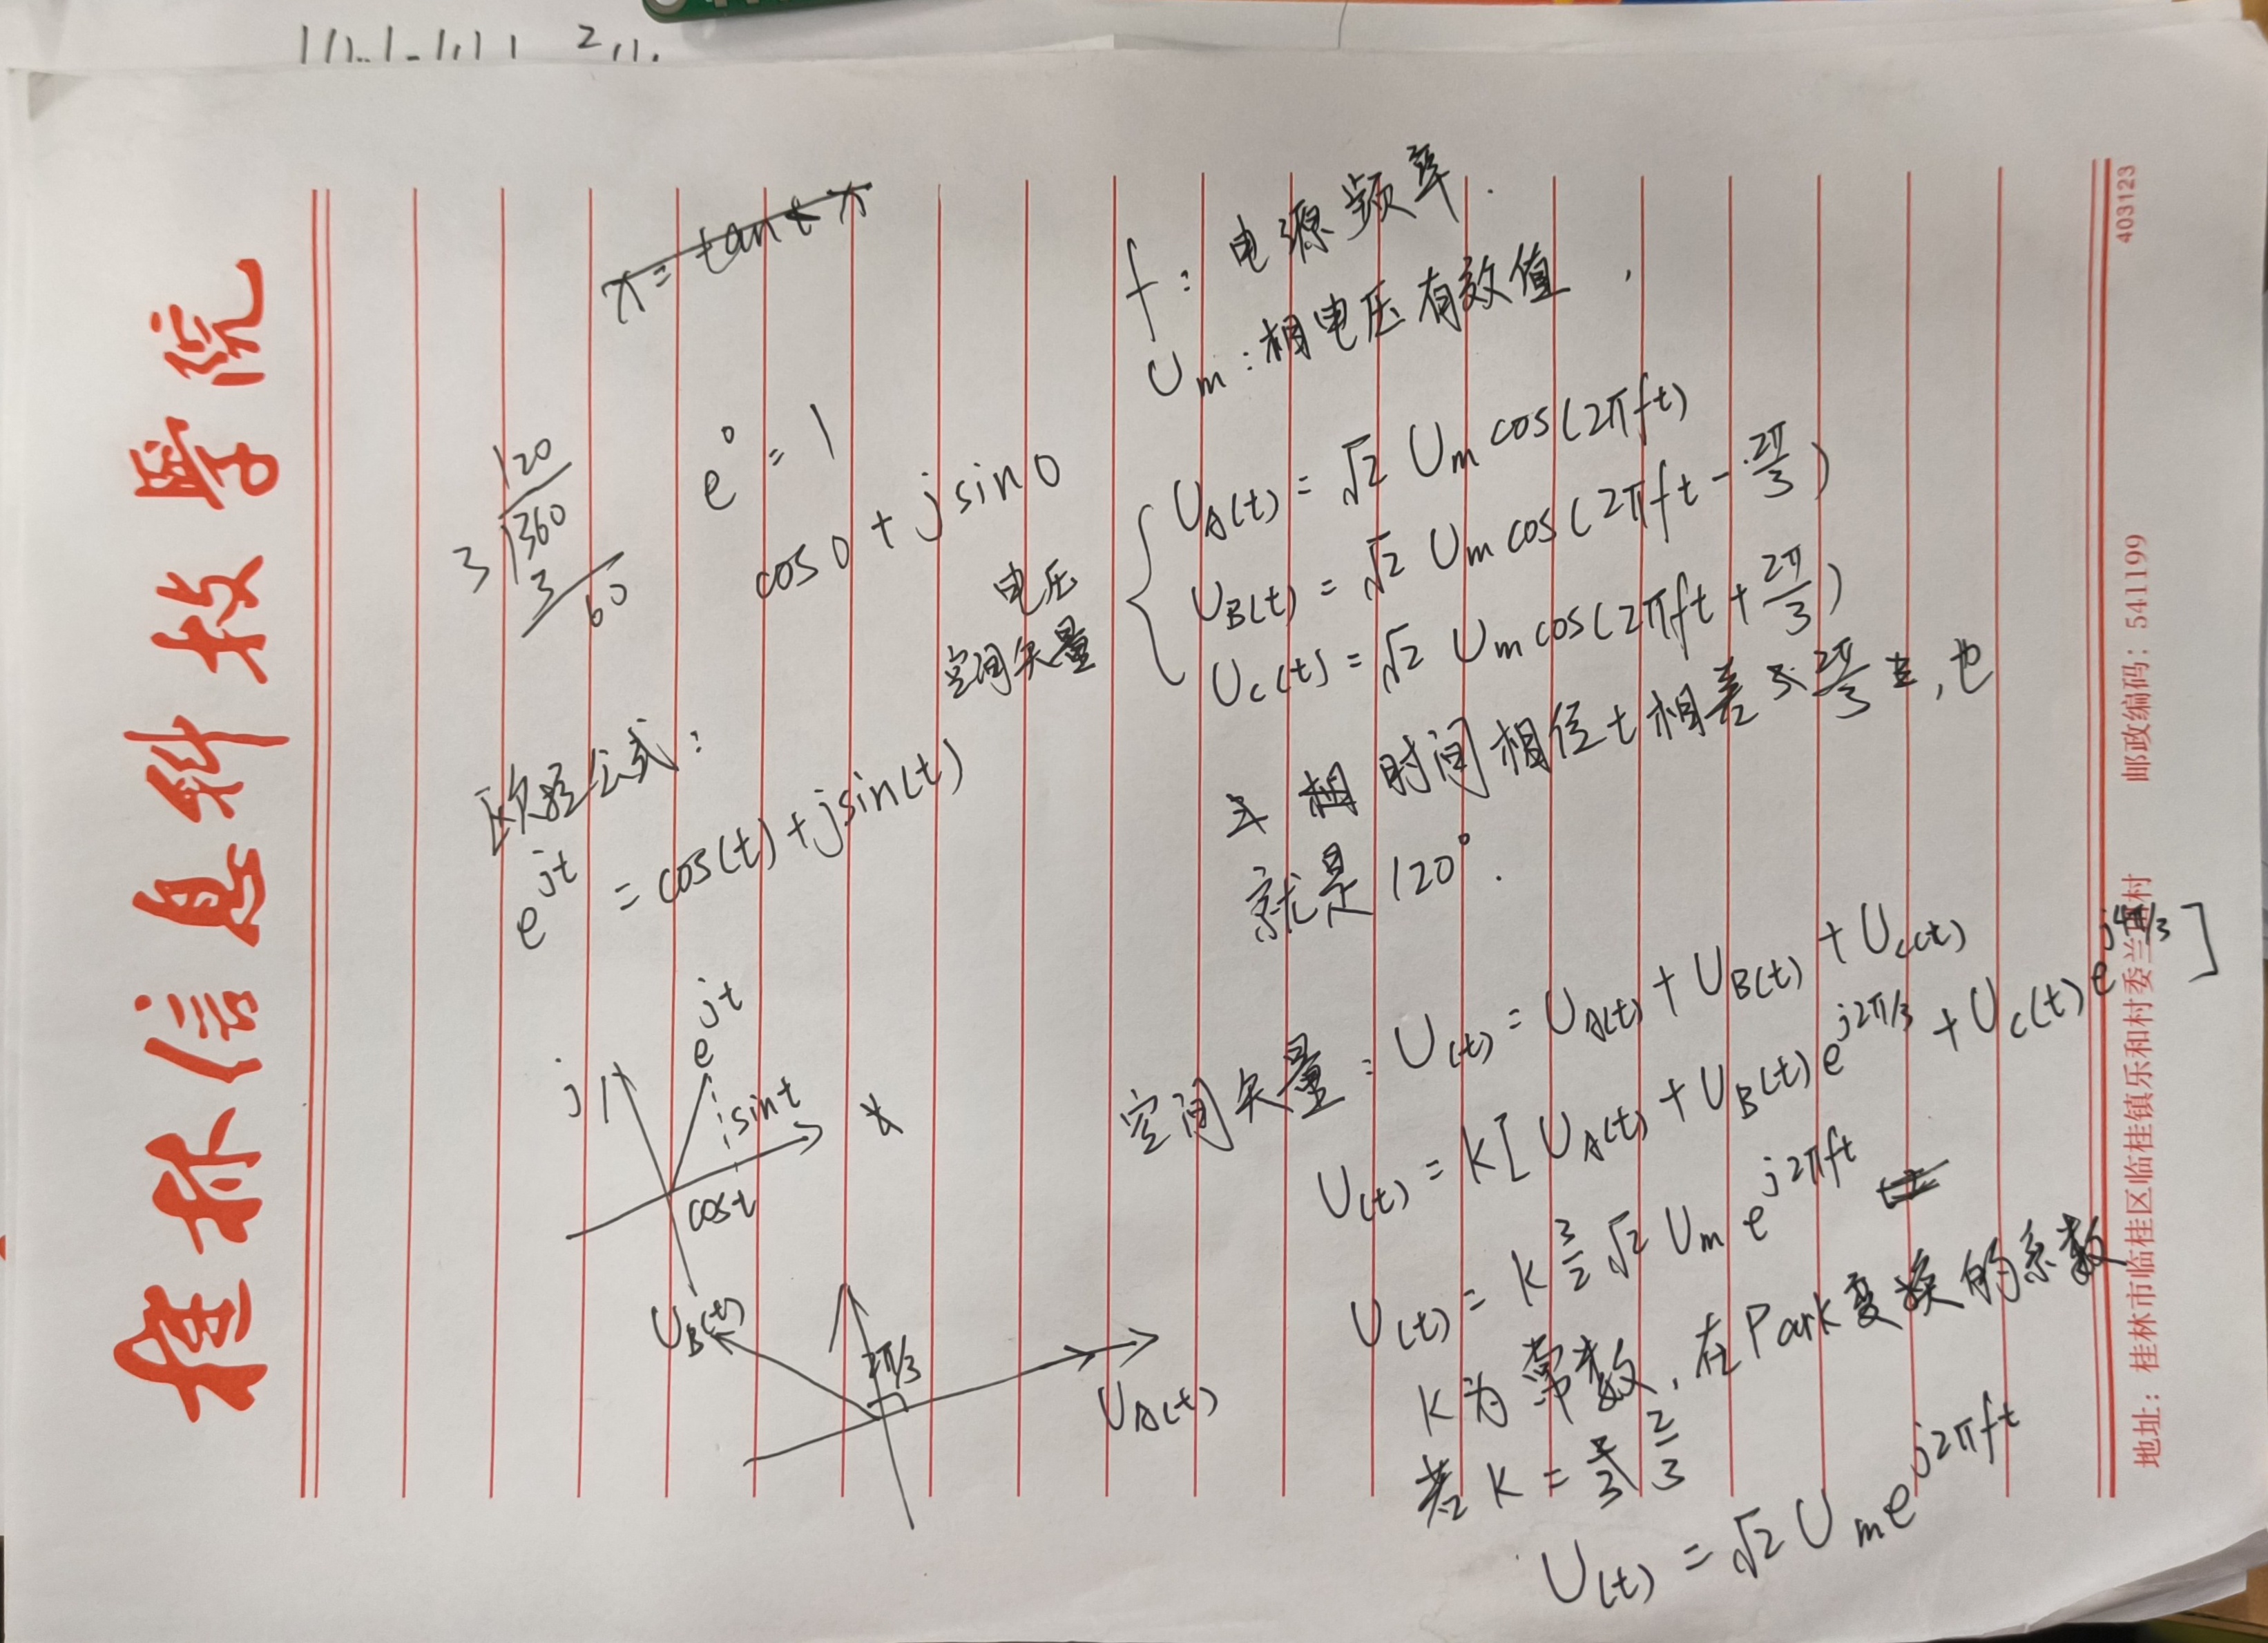 桂林信息科技学院
x = tan t x
120
3 360
3
60
e⁰ = 1
cos0 + jsin0
欧拉公式:
e^{jt} = cos(t) + jsin(t)
j
e^{jt}
jsint
cost
U_B(t)
2π/3
U_A(t)
f: 电源频率.
U_m: 相电压有效值,
电压
空间矢量
U_A(t) = √2 U_m cos(2πft)
U_B(t) = √2 U_m cos(2πft - 2π/3)
U_C(t) = √2 U_m cos(2πft + 2π/3)
三相时间相位上相差 2π/3, 也
就是120°.
空间矢量: U(t) = U_A(t) + U_B(t) + U_C(t)
U(t) = K[U_A(t) + U_B(t)e^{j2π/3} + U_C(t)e^{j4π/3}]
U(t) = K 3/2 √2 U_m e^{j2πft}
K为常数, 在Park变换的系数
若K = 2/3
U(t) = √2 U_m e^{j2πft}
403123
地址：桂林市临桂区临桂镇乐和村委兰田村 邮政编码：541199